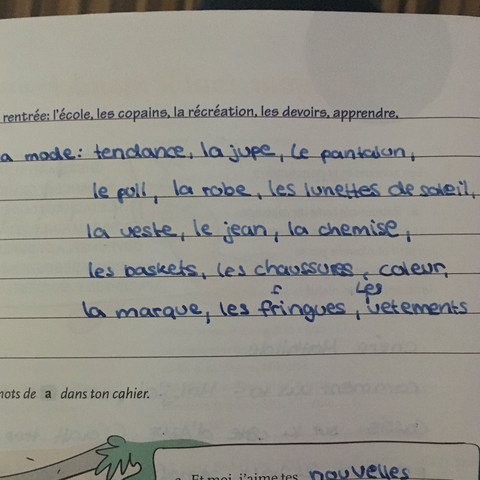 rentrée: l'école, les copains, la récréation, les devoirs, apprendre,
a mode: tendance, la jupe, le pantalon,
le pull, la robe, les lunettes de soleil,
la veste, le jean, la chemise,
les baskets, les chaussures, couleur,
f les
la marque, les fringues, vetements
mots de a dans ton cahier.
Et moi, j'aime tes nouvelles